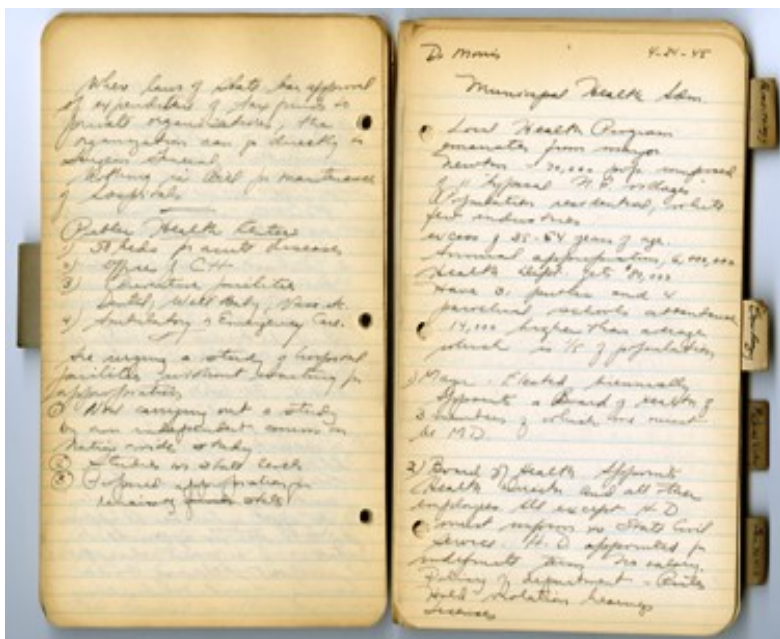 Where laws of State bar approval
of expenditure of tax funds in
private organizations, the
organization can go directly to
Surgeon General.
Nothing in Bill for maintenance
of hospitals
Public Health Centers
1) 50 beds for acute diseases
2) Offices of C.H.
3) facilities
Dental, Well Baby,
4) Ambulatory & Emergency Care.
Are urging a study of hospital
facilities without waiting for
appropriation
① Now carrying out a study
by an independent comm. on
Nation wide study
② Studies on state levels
③ appropriation for
Dr Morris 4-24-45
Municipal Health Adm
Local Health Program
emanates from mayor
Newton - 70,000 pop. composed
of 11 "typical N.E. villages"
Population residential, white
few industries
excess of 25-54 years of age.
Annual appropriation, 6,000,000
Health Dept. gets $80,000
Have 31 public and 4
parochial schools attendance
14,000 higher than average
which is 1/5 of population
1) Mayor. Elected biennially
Appoints a Board of Health of
3 members of which one must
be MD
2) Board of Health Appoints
Health Director and all other
employees. All except H.D
must to State Civil
Service. H.D appointed for
indefinite term no salary.
Policy of department - Rules
Hold violation hearings
diseases